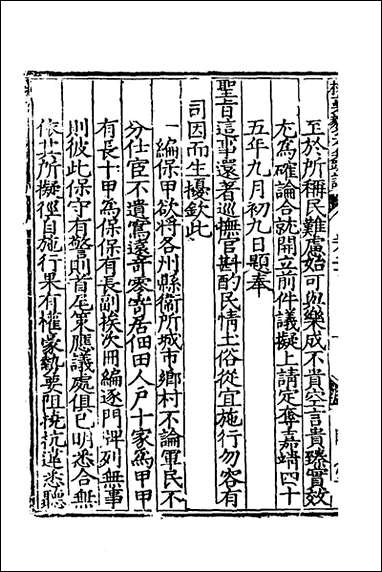 至於所稱民難慮始可與樂成不貴空言貴臻實效
尤為確論合就開立前件議擬上請定奪嘉靖四十
五年九月初九日題奉
聖旨這事還著巡撫官斟酌民情土俗從宜施行勿容有
司因而生擾欽此
一編保甲欲將各州縣衛所城市鄉村不論軍民不
分仕宦不遺寫遠奇零寄居佃田人戶十家為甲甲
有長十甲為保保有長副挨次冊編逐門牌列無事
則彼此保守有警則首尾策應議處俱已明悉合無
依其所擬徑自施行果有權豪勢要阻撓抗違悉聽